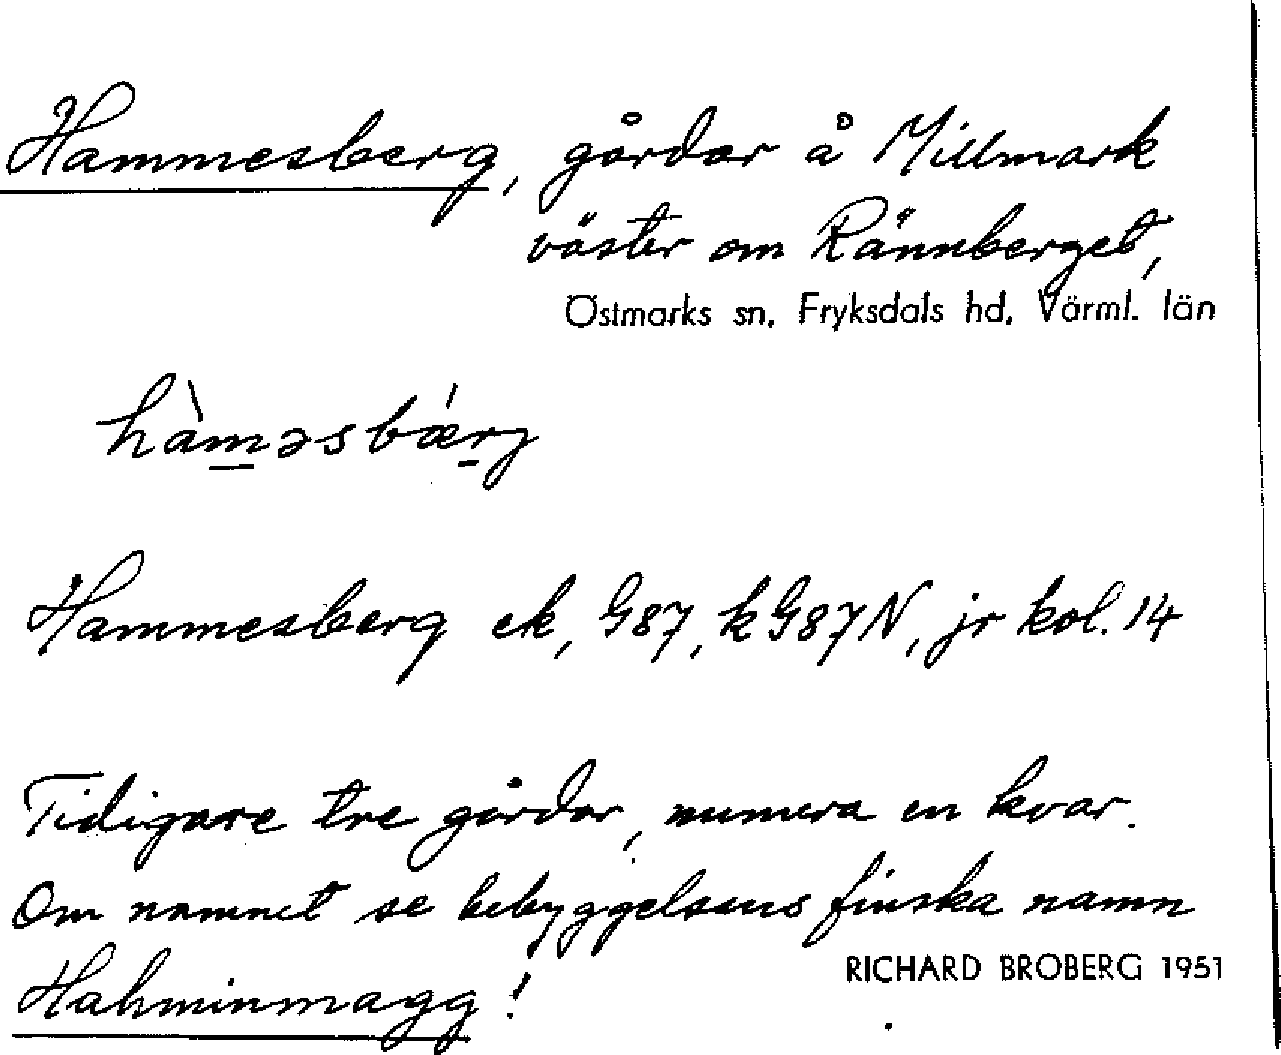 Hammesberg, gårdar å Millmark
väster om Rännberget,
Östmarks sn, Fryksdals hd, Värml. län
hàməsbǽrj
Hammesberg ek, G87, kG87N, jr kol. 14
Tidigare tre gårdar, numera en kvar.
Om namnet se bebyggelsens finska namn
Hahminmagg!
RICHARD BROBERG 1951